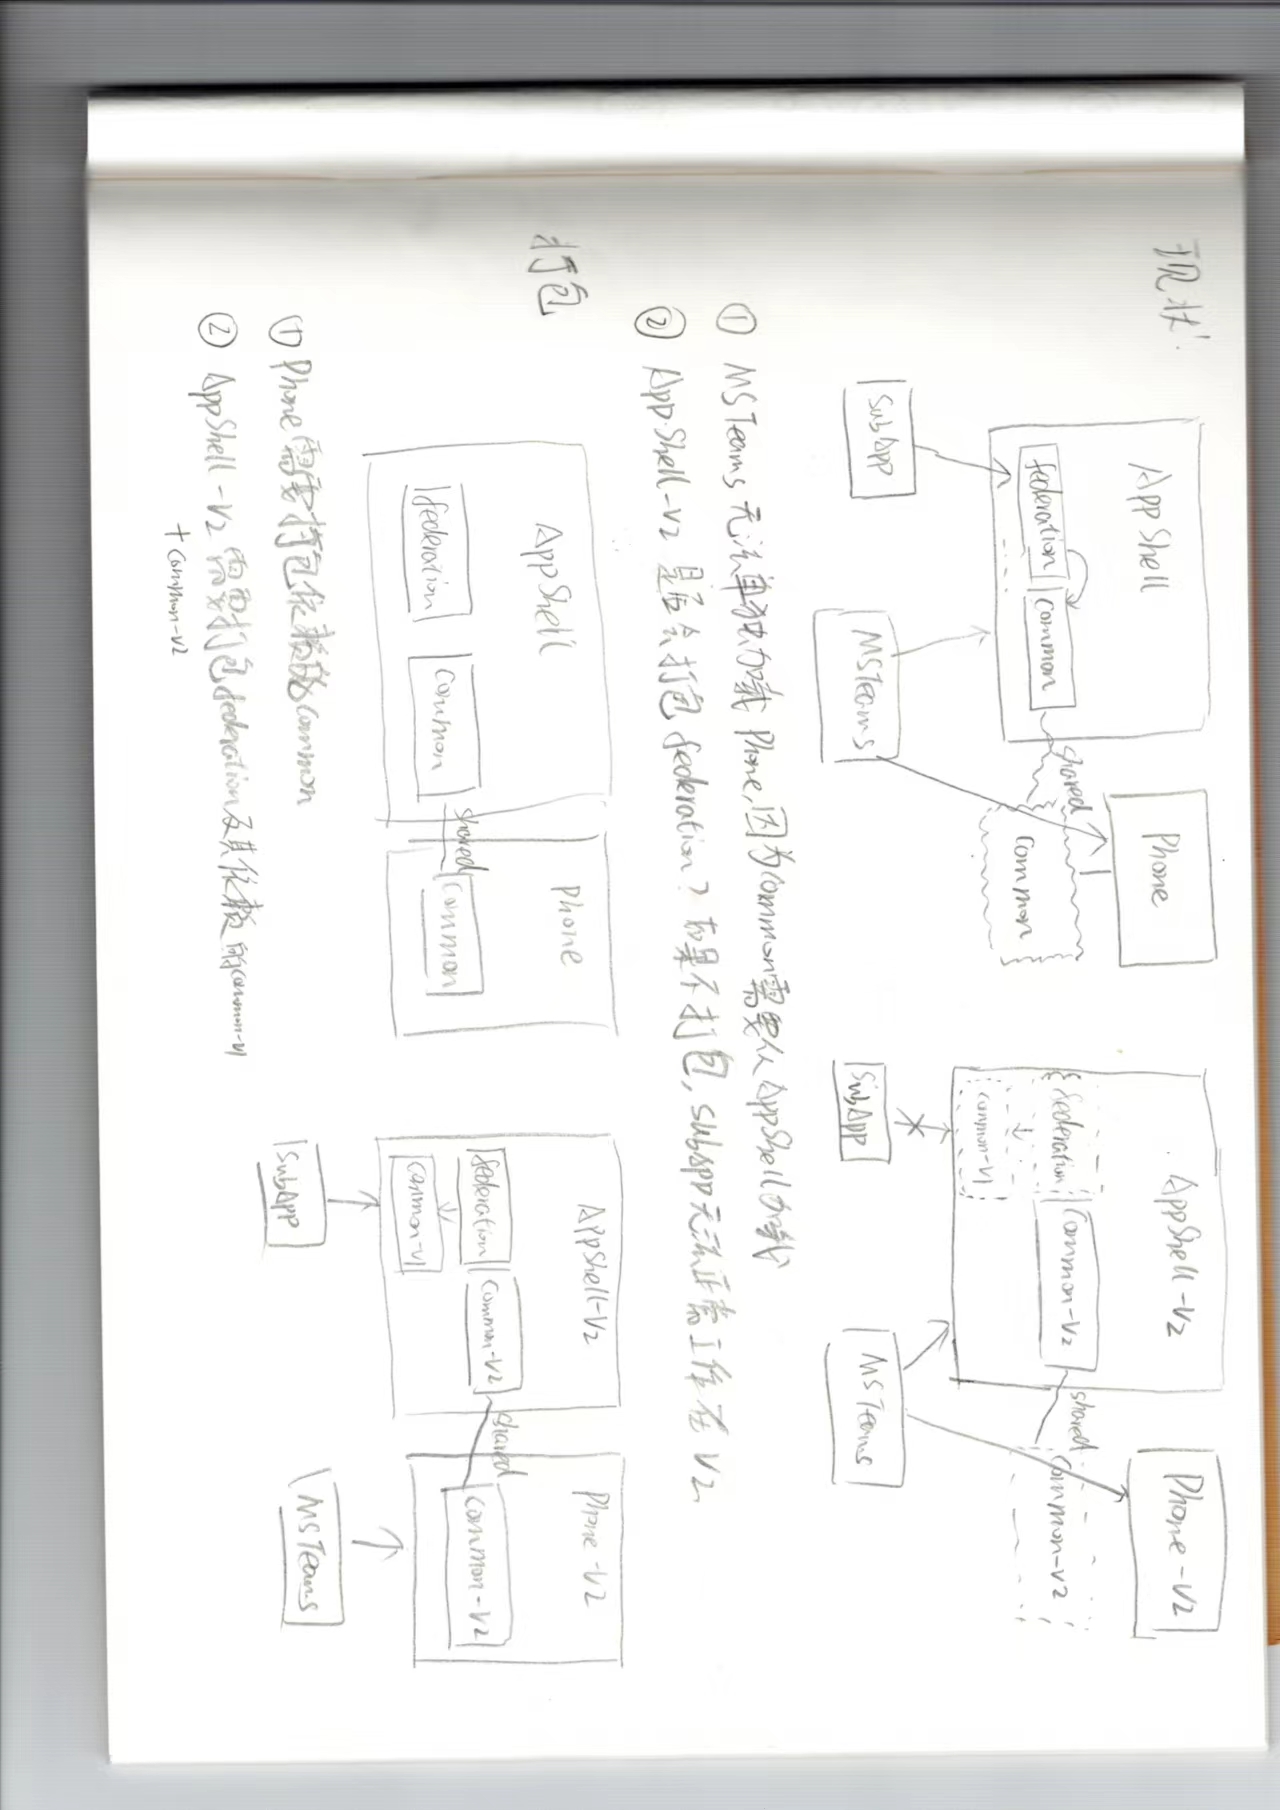 现状:
AppShell
federation
common
shared
common
Phone
SubApp
MSTeams
AppShell-V2
federation
common-V1
common-V2
shared
common-V2
Phone-V2
SubApp
MSTeams
① MSTeams 无法单独加载 Phone,因为common需要从AppShell加载
② AppShell-V2 是否会打包 federation? 如果不打包, subapp无法正常工作在 V2
打包
AppShell
federation
common
shared
Phone
common
AppShell-V2
federation
common-V1
common-V2
shared
Phone-V2
common-V2
SubApp
MSTeams
① Phone 需要打包依赖的common
② AppShell-V2 需要打包federation及其依赖的common-V1
+ common-V2